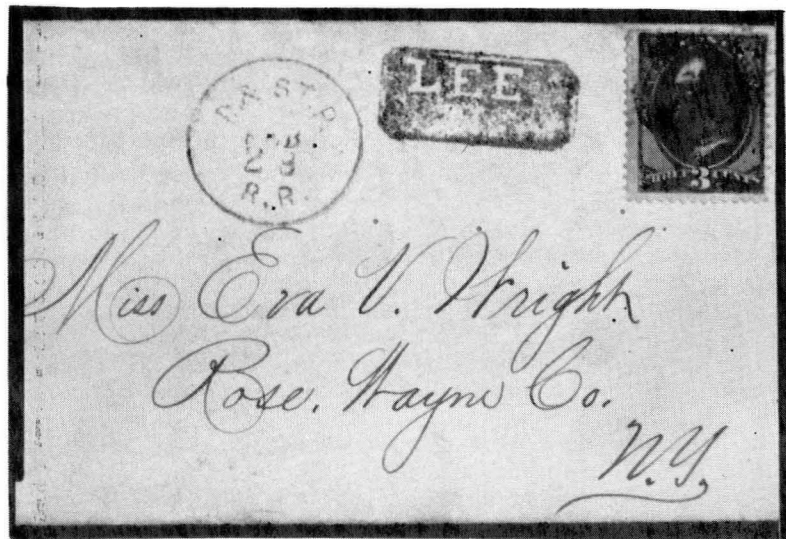 ST.P.
23
R.R.
LEE
3
Miss Eva V. Wright
Rose, Wayne Co.
N.Y.